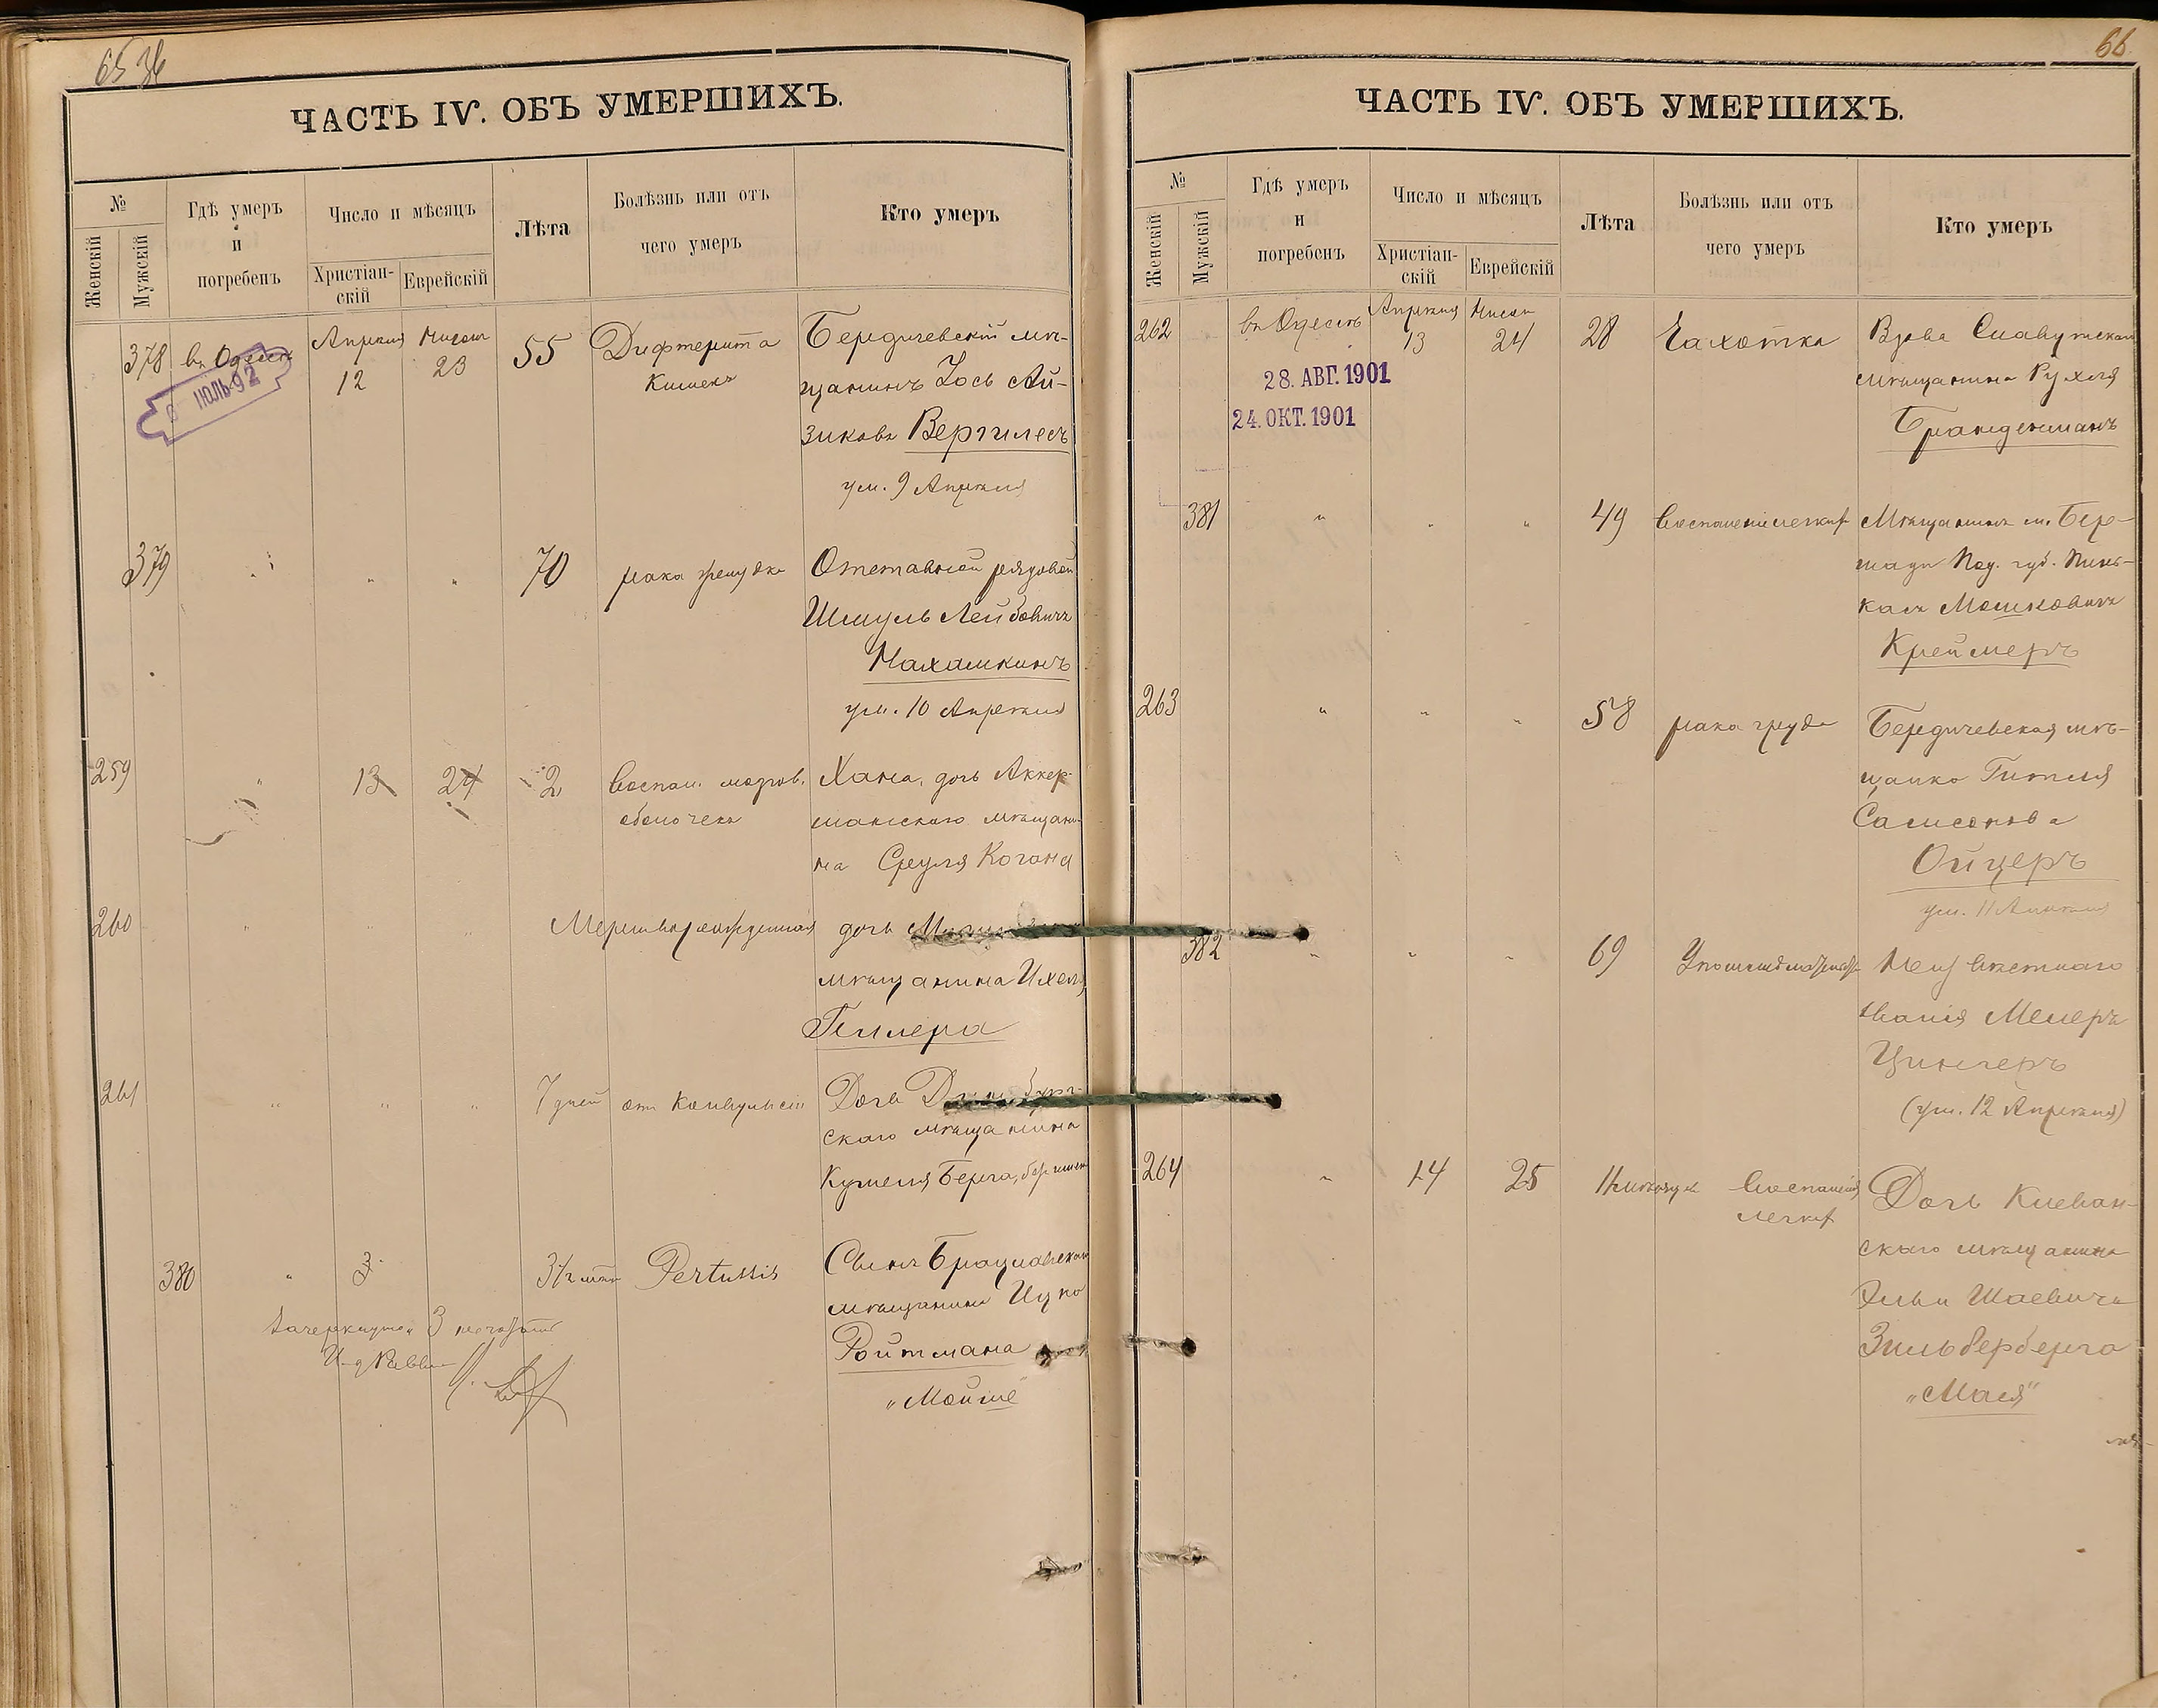 65 36
ЧАСТЬ IV. ОБЪ УМЕРШИХЪ.
№
Женскій
Мужскій
Гдѣ умеръ
и
погребенъ
Число и мѣсяцъ
Христіан-
скій
Еврейскій
Лѣта
Болѣзнь или отъ
чего умеръ
Кто умеръ
378 въ Одессѣ Апрѣля 12 Нисан 23 55 Дифтерита
кишекъ
Бердичевскій мѣ-
щанинъ Іось Ай-
зиковъ Вергилесъ
ум. 9 Апрѣля
ІЮЛЬ 92
379 " " " 70 рака желудка
Отставной рядовой
Шмуль Лейбовичъ
Махамкинъ
ум. 10 Апрѣля
259 " 13 24 2 Воспал. мозгов.
оболочекъ
Хана, дочь Аккер-
манскаго мѣщани-
на Сруля Когана
260 " " " Мертворожденная дочь
мѣщанина Ихеля
Геллера
261 " " " 7 дней отъ конвульсіи
Дочь
скаго мѣщанина
Кушеля Берга,
380 " 3 3½ мѣс Pertussis
Сынъ Брацлавскаго
мѣщанина Ицко
Ройтмана
"Мойше"
Зачеркнутое 3 не читать
66
ЧАСТЬ IV. ОБЪ УМЕРШИХЪ.
№
Женскій
Мужскій
Гдѣ умеръ
и
погребенъ
Число и мѣсяцъ
Христіан-
скій
Еврейскій
Лѣта
Болѣзнь или отъ
чего умеръ
Кто умеръ
262 въ Одессѣ Апрѣля 13 Нисан 24 28 Чахотка
Вдова Славутскаго
мѣщанина Рухля
Бранденманъ
28. АВГ. 1901
24. ОКТ. 1901
381 " " " 49 Воспаленіе легкихъ
Мѣщанинъ м. Бер-
шади Под. губ. Пинь-
касъ Мошковичъ
Креймеръ
263 " " " 58 рака груди
Бердичевская мѣ-
щанка Гитля
Самсонова
Ойцеръ
ум. 11 Апрѣля
382 " " " 69
Неизвѣстнаго
званія Меиеръ
Цингеръ
(ум. 12 Апрѣля)
264 " 14 25 11 мѣсяцев Воспаленія
легкихъ
Дочь Клеван-
скаго мѣщанина
Эльи Шаевича
Зильберберга
"Мася"